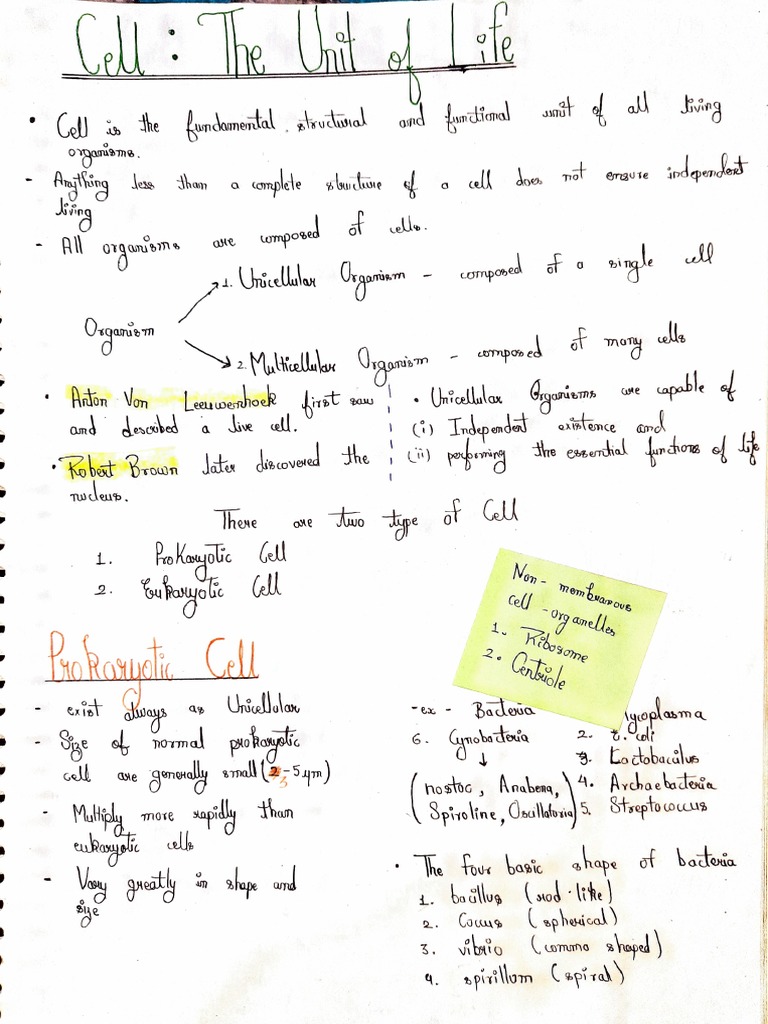 Cell : The Unit of Life
• Cell is the fundamental, structural and functional unit of all living
organisms.
- Anything less than a complete structure of a cell does not ensure independent
living
- All organisms are composed of cells.
1. Unicellular Organism - composed of a single cell
Organism
2. Multicellular Organism - composed of many cells
• Anton Von Leeuwenhoek first saw
and described a live cell.
• Robert Brown later discovered the
nucleus.
• Unicellular Organisms are capable of
(i) Independent existence and
(ii) performing the essential functions of life
There are two type of Cell
1. Prokaryotic Cell
2. Eukaryotic Cell
Non-membranous
cell-organelles
1. Ribosome
2. Centriole
Prokaryotic Cell
- exist always as Unicellular
- Size of normal prokaryotic
cell are generally small (3-5µm)
- Multiply more rapidly than
eukaryotic cells
- Vary greatly in shape and
size
- ex - Bacteria
ycoplasma
6. Cynobacteria
2. E. coli
3. Lactobaculus
(nostoc, Anabena,
Spiroline, Oscillatoria)
4. Archaebacteria
5. Streptococcus
• The four basic shape of bacteria
1. bacillus (rod-like)
2. Coccus (spherical)
3. vibrio (comma shaped)
4. spirillum (spiral)